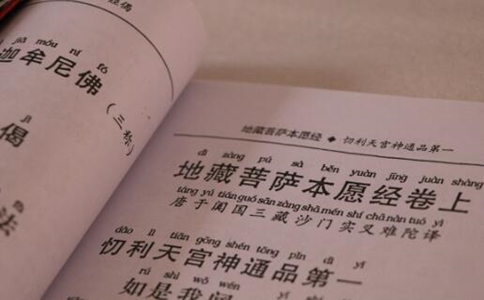 经偈
jiā móu ní fó
迦牟尼佛（三称）
jì
偈
法
地藏菩萨本愿经 ◆ 忉利天宫神通品第一
dì zàng pú sà běn yuàn jīng juàn shàng
地藏菩萨本愿经卷上
táng yú tián guó sān zàng shā mén shí chā nán tuó yì
唐于阗国三藏沙门实叉难陀译
dāo lì tiān gōng shén tōng pǐn dì yī
忉利天宫神通品第一
rú shì wǒ wén
如是我闻